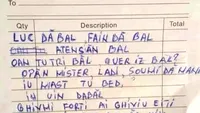 To
QTY Description Total
LUC DĀ BAL, FAIN DĀ BAL
ATENȘĀN BAL
OAN TU TRI BĀL QUER IZ BAL?
OPĀN MISTER, LADI, SOUMI DĀ MANI
IU MAST TU DED,
IU UIN DABĀL
GHIVMI FORTI AI GHIVIU EITI